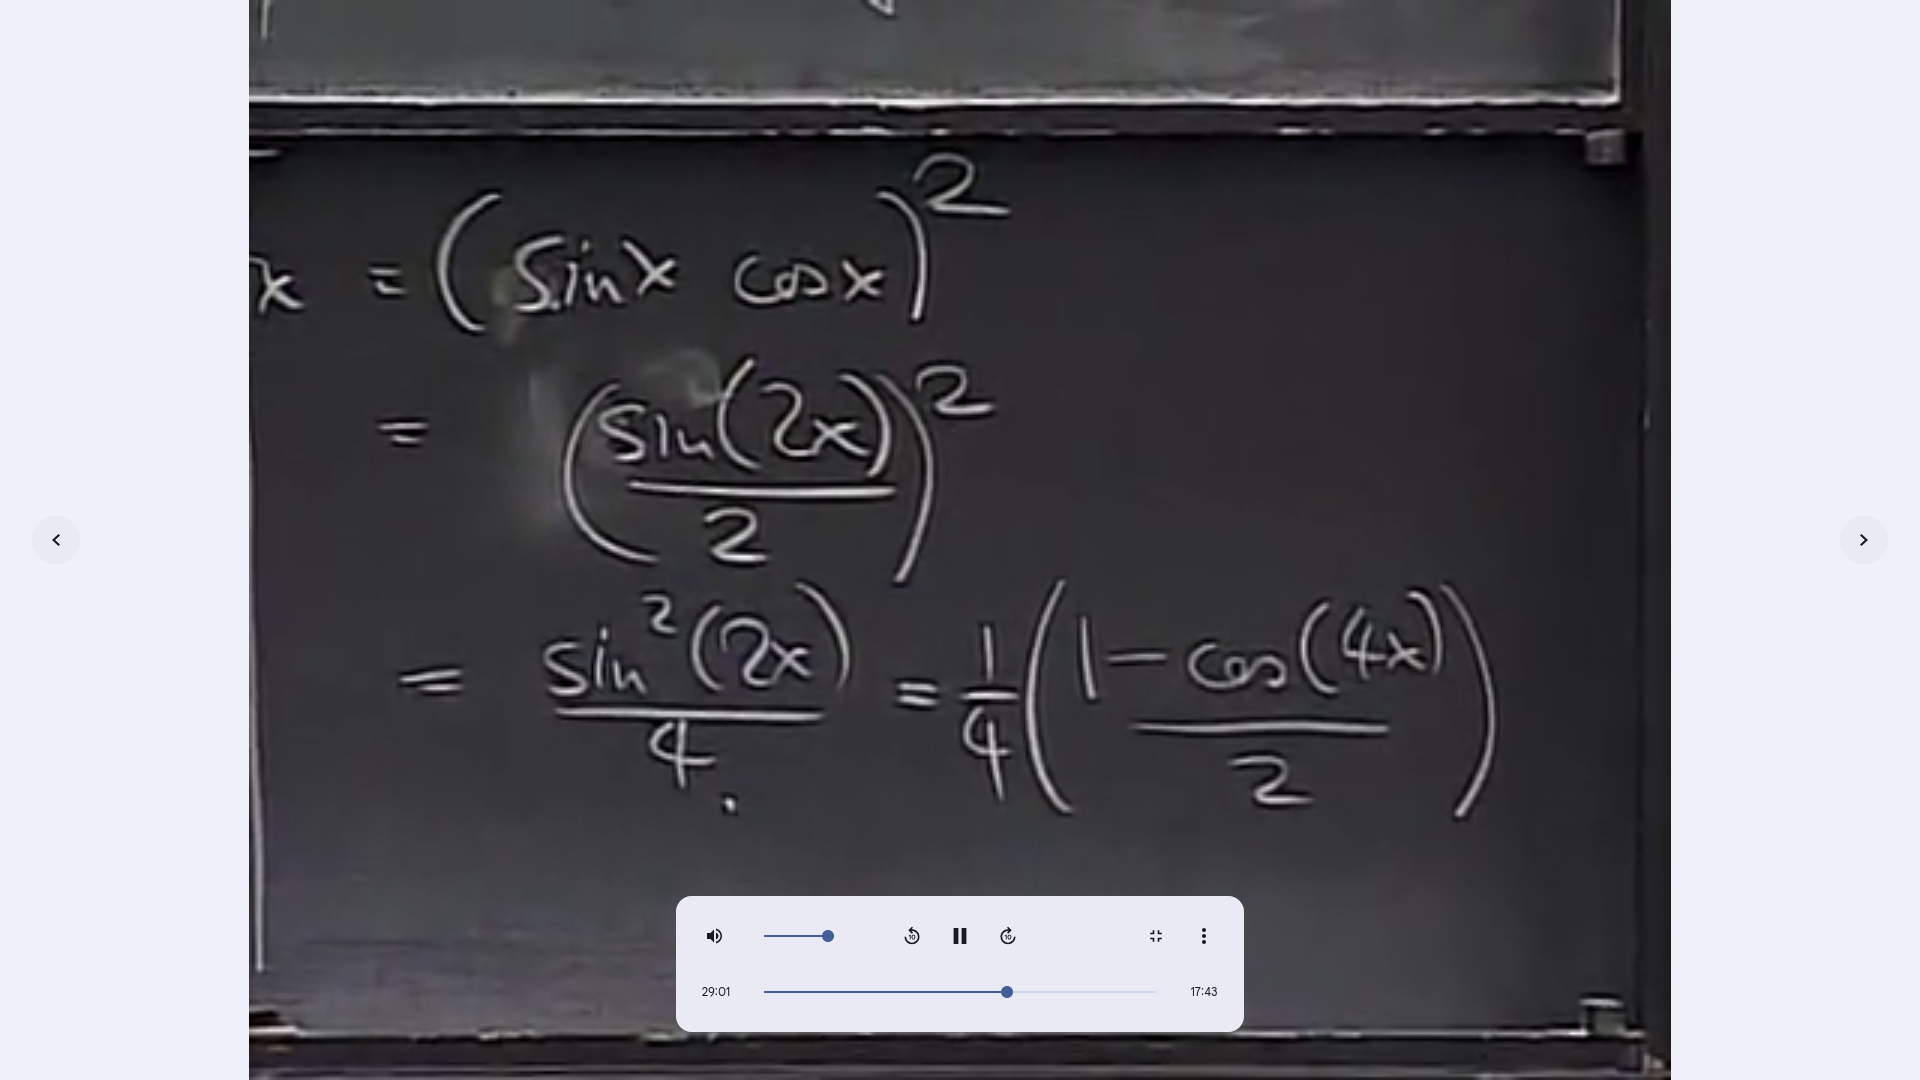 x = (sin x cos x)²
= (sin(2x)/2)²
= sin²(2x)/4. = 1/4 (1 − cos(4x)/2)
29:01
17:43